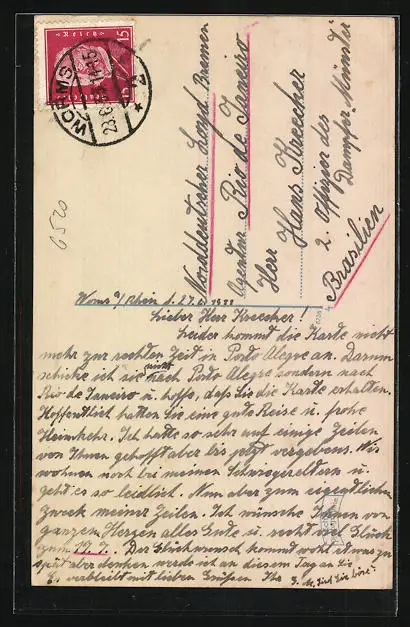 Reich
15
WORMS
6520
Norddeutscher Lloyd Bremen
Agentur Rio de Janeiro
Herr Hans Kreecher
2. Offizier des
Dampfer „Münster"
Brasilien
Worms a/Rhein d. 27.6.
Lieber Herr Kreecher!
Leider kommt die Karte nicht
mehr zur rechten Zeit in Porto Alegre an. Darum
schicke ich sie nicht nach Porto Alegre sondern nach
Rio de Janeiro u. hoffe, daß Sie die Karte erhalten.
Hoffentlich hatten Sie eine gute Reise u. frohe
Heimkehr. Ich hatte so sehr auf einige Zeilen
von Ihnen gehofft aber bis jetzt vergebens. Wir
wohnen noch bei meinen Schwiegereltern u.
geht es so leidlich. Nun aber zum eigentlichen
Zweck meiner Zeilen. Ich wünsche Ihnen von
ganzem Herzen alles Gute u. recht viel Glück
zum 19.7. Der Glückwunsch kommt wohl etwas zu
spät aber denken werde ich an diesem Tag an Sie
Es verbleibt mit lieben Grüßen Ihr